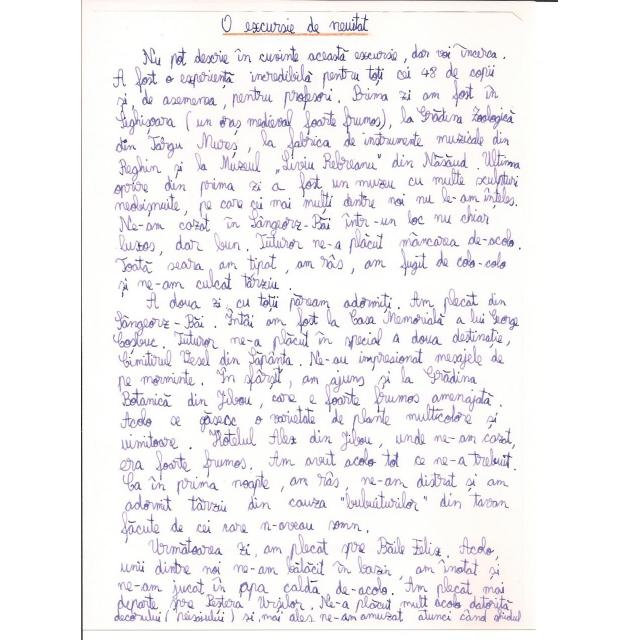 O excursie de neuitat
Nu pot descrie în cuvinte această excursie, dar voi încerca.
A fost o experiență incredibilă pentru toți cei 48 de copii
și, de asemenea, pentru profesori. Prima zi am fost în
Sighișoara (un oraș medieval foarte frumos), la Grădina Zoologică
din Târgu Mureș, la fabrica de instrumente muzicale din
Reghin și la Muzeul „Liviu Rebreanu" din Năsăud. Ultima
oprire din prima zi a fost un muzeu cu multe sculpturi
neobișnuite, pe care cei mai mulți dintre noi nu le-am înțeles.
Ne-am cazat în Sângeorz-Băi într-un loc nu chiar
luxos, dar bun. Tuturor ne-a plăcut mâncarea de-acolo.
Toată seara, am țipat, am râs, am fugit de colo-colo
și ne-am culcat târziu.
A doua zi, cu toții păream adormiți. Am plecat din
Sângeorz-Băi. Întâi am fost la Casa Memorială a lui George
Coșbuc. Tuturor ne-a plăcut în special a doua destinație,
Cimitirul Vesel din Săpânța. Ne-au impresionat mesajele de
pe morminte. În sfârșit, am ajuns și la Grădina
Botanică din Jibou, care e foarte frumos amenajată.
Acolo se găsesc o varietate de plante multicolore și
uimitoare. Hotelul Alex din Jibou, unde ne-am cazat,
era foarte frumos. Am avut acolo tot ce ne-a trebuit.
Ca în prima noapte, am râs, ne-am distrat și am
adormit târziu din cauza "bubuiturilor" din tavan
făcute de cei care n-aveau somn.
Următoarea zi, am plecat spre Băile Felix. Acolo,
unii dintre noi ne-am bălăcit în bazin, am înotat și
ne-am jucat în apa caldă de-acolo. Am plecat mai
departe spre Peștera Urșilor. Ne-a plăcut mult acolo datorită
decorului (peisajului) și, mai ales ne-am amuzat atunci când ghidul